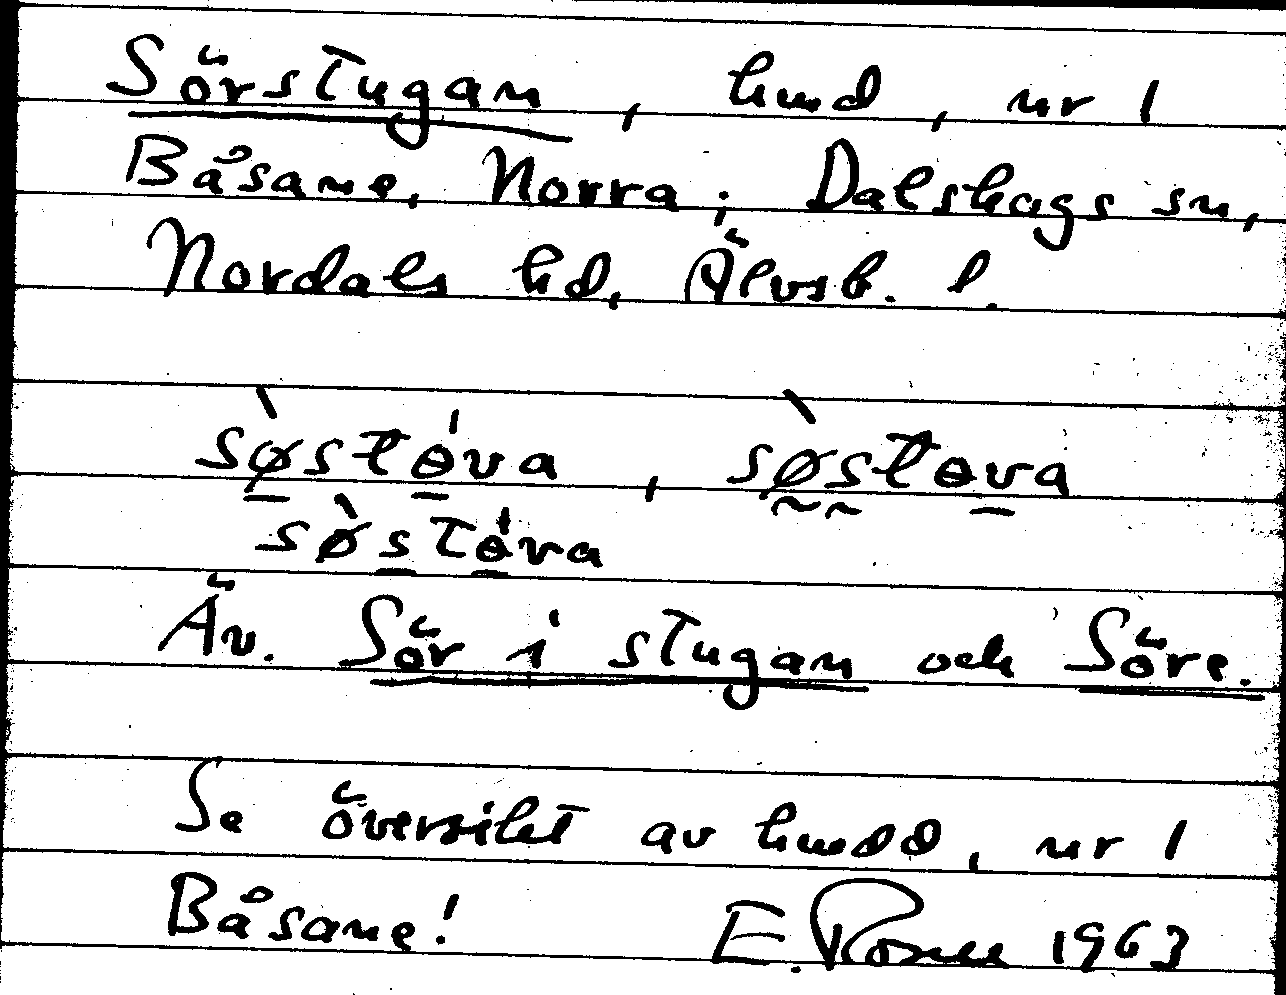 Sörstugan, hmd, nr 1
Båsane, Norra; Dalskogs sn,
Nordals hd, Älvsb. l.
sø̀stɵ́va, sø̀stɵva
sø̀stɵ́va
Äv. Sör i stugan och Söre.
Se översikt av hmdd, nr 1
Båsane! E. Rosell 1963